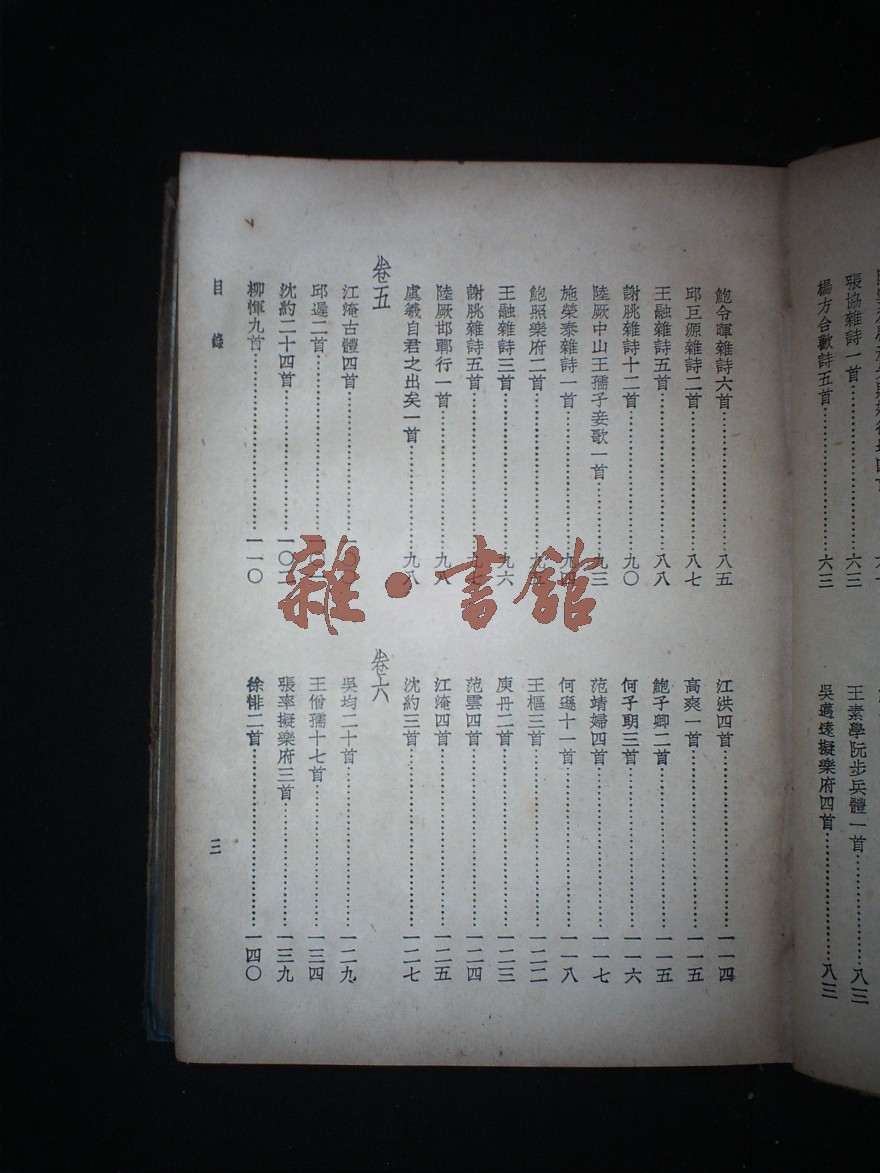 張協雜詩一首……六三
楊方合歡詩五首……六三
王素學阮步兵體一首……八三
吳邁遠擬樂府四首……八三
鮑令暉雜詩六首……八五
邱巨源雜詩二首……八七
王融雜詩五首……八八
謝朓雜詩十二首……九〇
陸厥中山王孺子妾歌一首……九三
施榮泰雜詩一首……九四
鮑照樂府二首……九五
王融雜詩三首……九六
謝朓雜詩五首……九七
陸厥邯鄲行一首……九八
虞羲自君之出矣一首……九八
卷五
江淹古體四首……一〇〇
邱遲二首……一〇一
沈約二十四首……一〇二
柳惲九首……一一〇
江洪四首……一一四
高爽一首……一一五
鮑子卿二首……一一五
何子朗三首……一一六
范靖婦四首……一一七
何遜十一首……一一八
王樞三首……一二二
庾丹二首……一二三
范雲四首……一二四
江淹四首……一二五
沈約三首……一二七
卷六
吳均二十首……一二九
王僧孺十七首……一三四
張率擬樂府三首……一三九
徐悱二首……一四〇
目錄
三
雜·書館